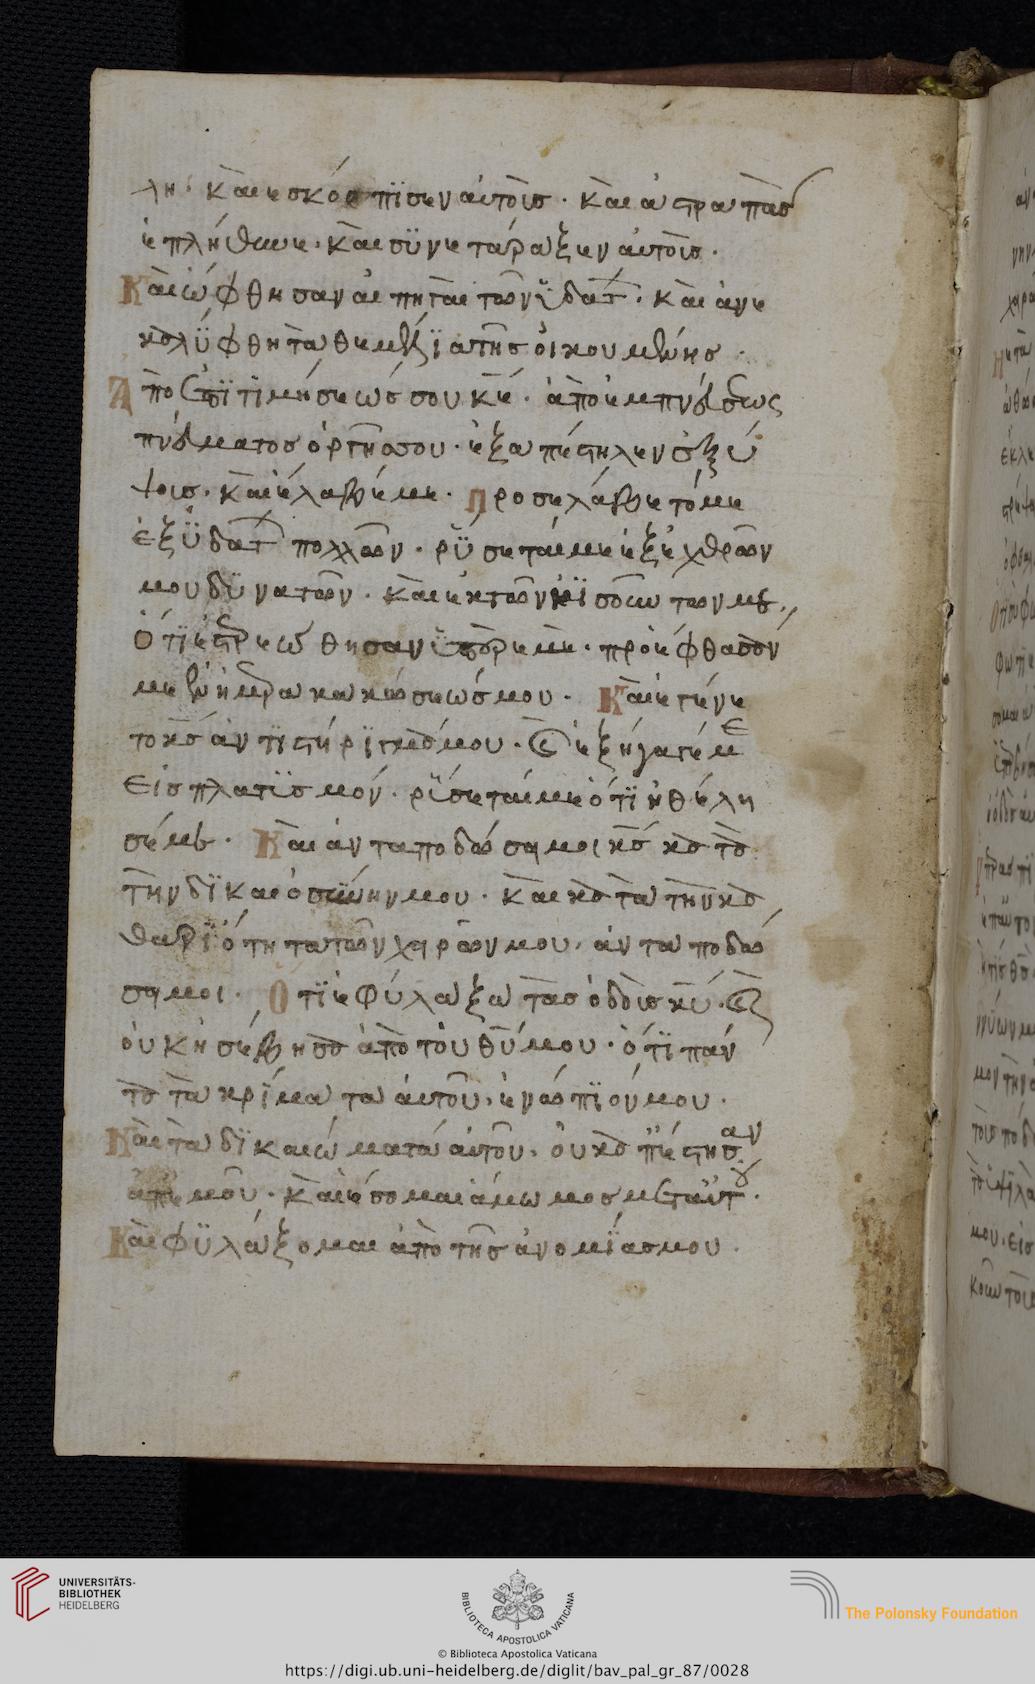 λη· καὶ εσκόρπϊσεν αὐτοὶσ· καὶ ἀστραπὰσ
ἐπλήθυνε· καὶ σϋνετάραξεν αὐτοισ·
Καὶ ὠφθησαν αἱ πηγαὶ τῶν ϋδατ· καὶ ἀνε
καλϋφθη τὰ θεμέλϊα τῆσ οἰκουμένησ·
Ἀπὸ ἐπϊτϊμήσεώσ σου κε· ἀπὸ ἐμπνεύσεως
πνεύματοσ ὀργῆσ σου· ἐξαπέστηλεν ἐξ ύ
ψοισ· καὶ ἔλαβέ με· Προσελάβετό με
ἐξ ϋδατ πολλῶν· ρϋσεταί με ἐξ ἐχθρῶν
μου δϋνατῶν· καὶ ἐκ τῶν μισούντων με·
Ὅτϊ ἐστερεώθησαν ϋπὲρ ἐμὲ· προέφθασάν
με ἐν ἡμέρα κακώσεώσ μου· Καὶ ἐγένε
το κσ ἀντϊστήρϊγμά μου· καὶ ἐξήγαγέ με
Εἰσ πλατϊσμόν· ρϋσεταί με ὅτϊ ἠθέλη
σέ με· Καὶ ἀνταποδώση μοι κσ κατὰ
τὴν δϊκαιοσύνην μου· καὶ κατὰ τὴν κα
θαρϊότητα τῶν χειρῶν μου· ἀνταποδώ
ση μοι· Ὅτϊ ἐφύλαξα τὰσ ὁδοὺσ κυ· καὶ
οὐκ ἠσέβησα ἀπὸ τοῦ θυ μου· ὅτϊ πάν
τα τὰ κρίματα αὐτοῦ· ἐνώπϊόν μου·
Καὶ τὰ δϊκαιώματα αὐτοῦ· οὐκ ἀπέστησαν
ἀπ ἐμοῦ· καὶ ἔσομαι ἄμωμοσ μετ αὐτοῦ·
Καὶ φϋλάξομαι ἀπὸ τῆσ ἀνομϊασ μου·
UNIVERSITÄTS-
BIBLIOTHEK
HEIDELBERG
BIBLIOTECA APOSTOLICA VATICANA
The Polonsky Foundation
© Biblioteca Apostolica Vaticana
https://digi.ub.uni-heidelberg.de/diglit/bav_pal_gr_87/0028